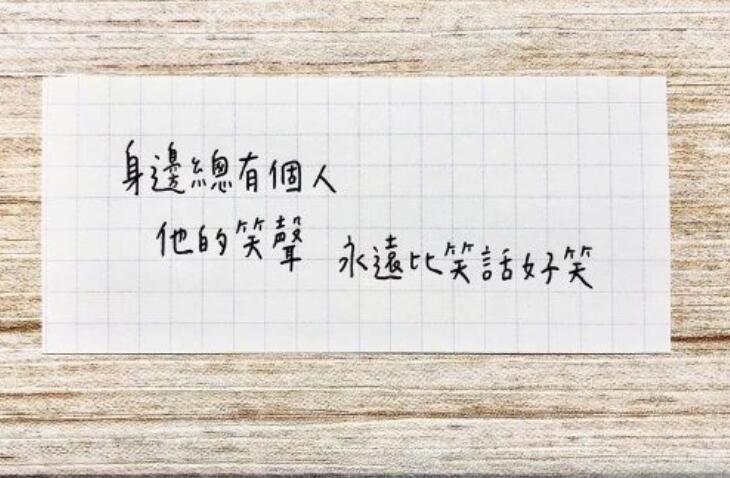 身邊總有個人
他的笑聲
永遠比笑話好笑